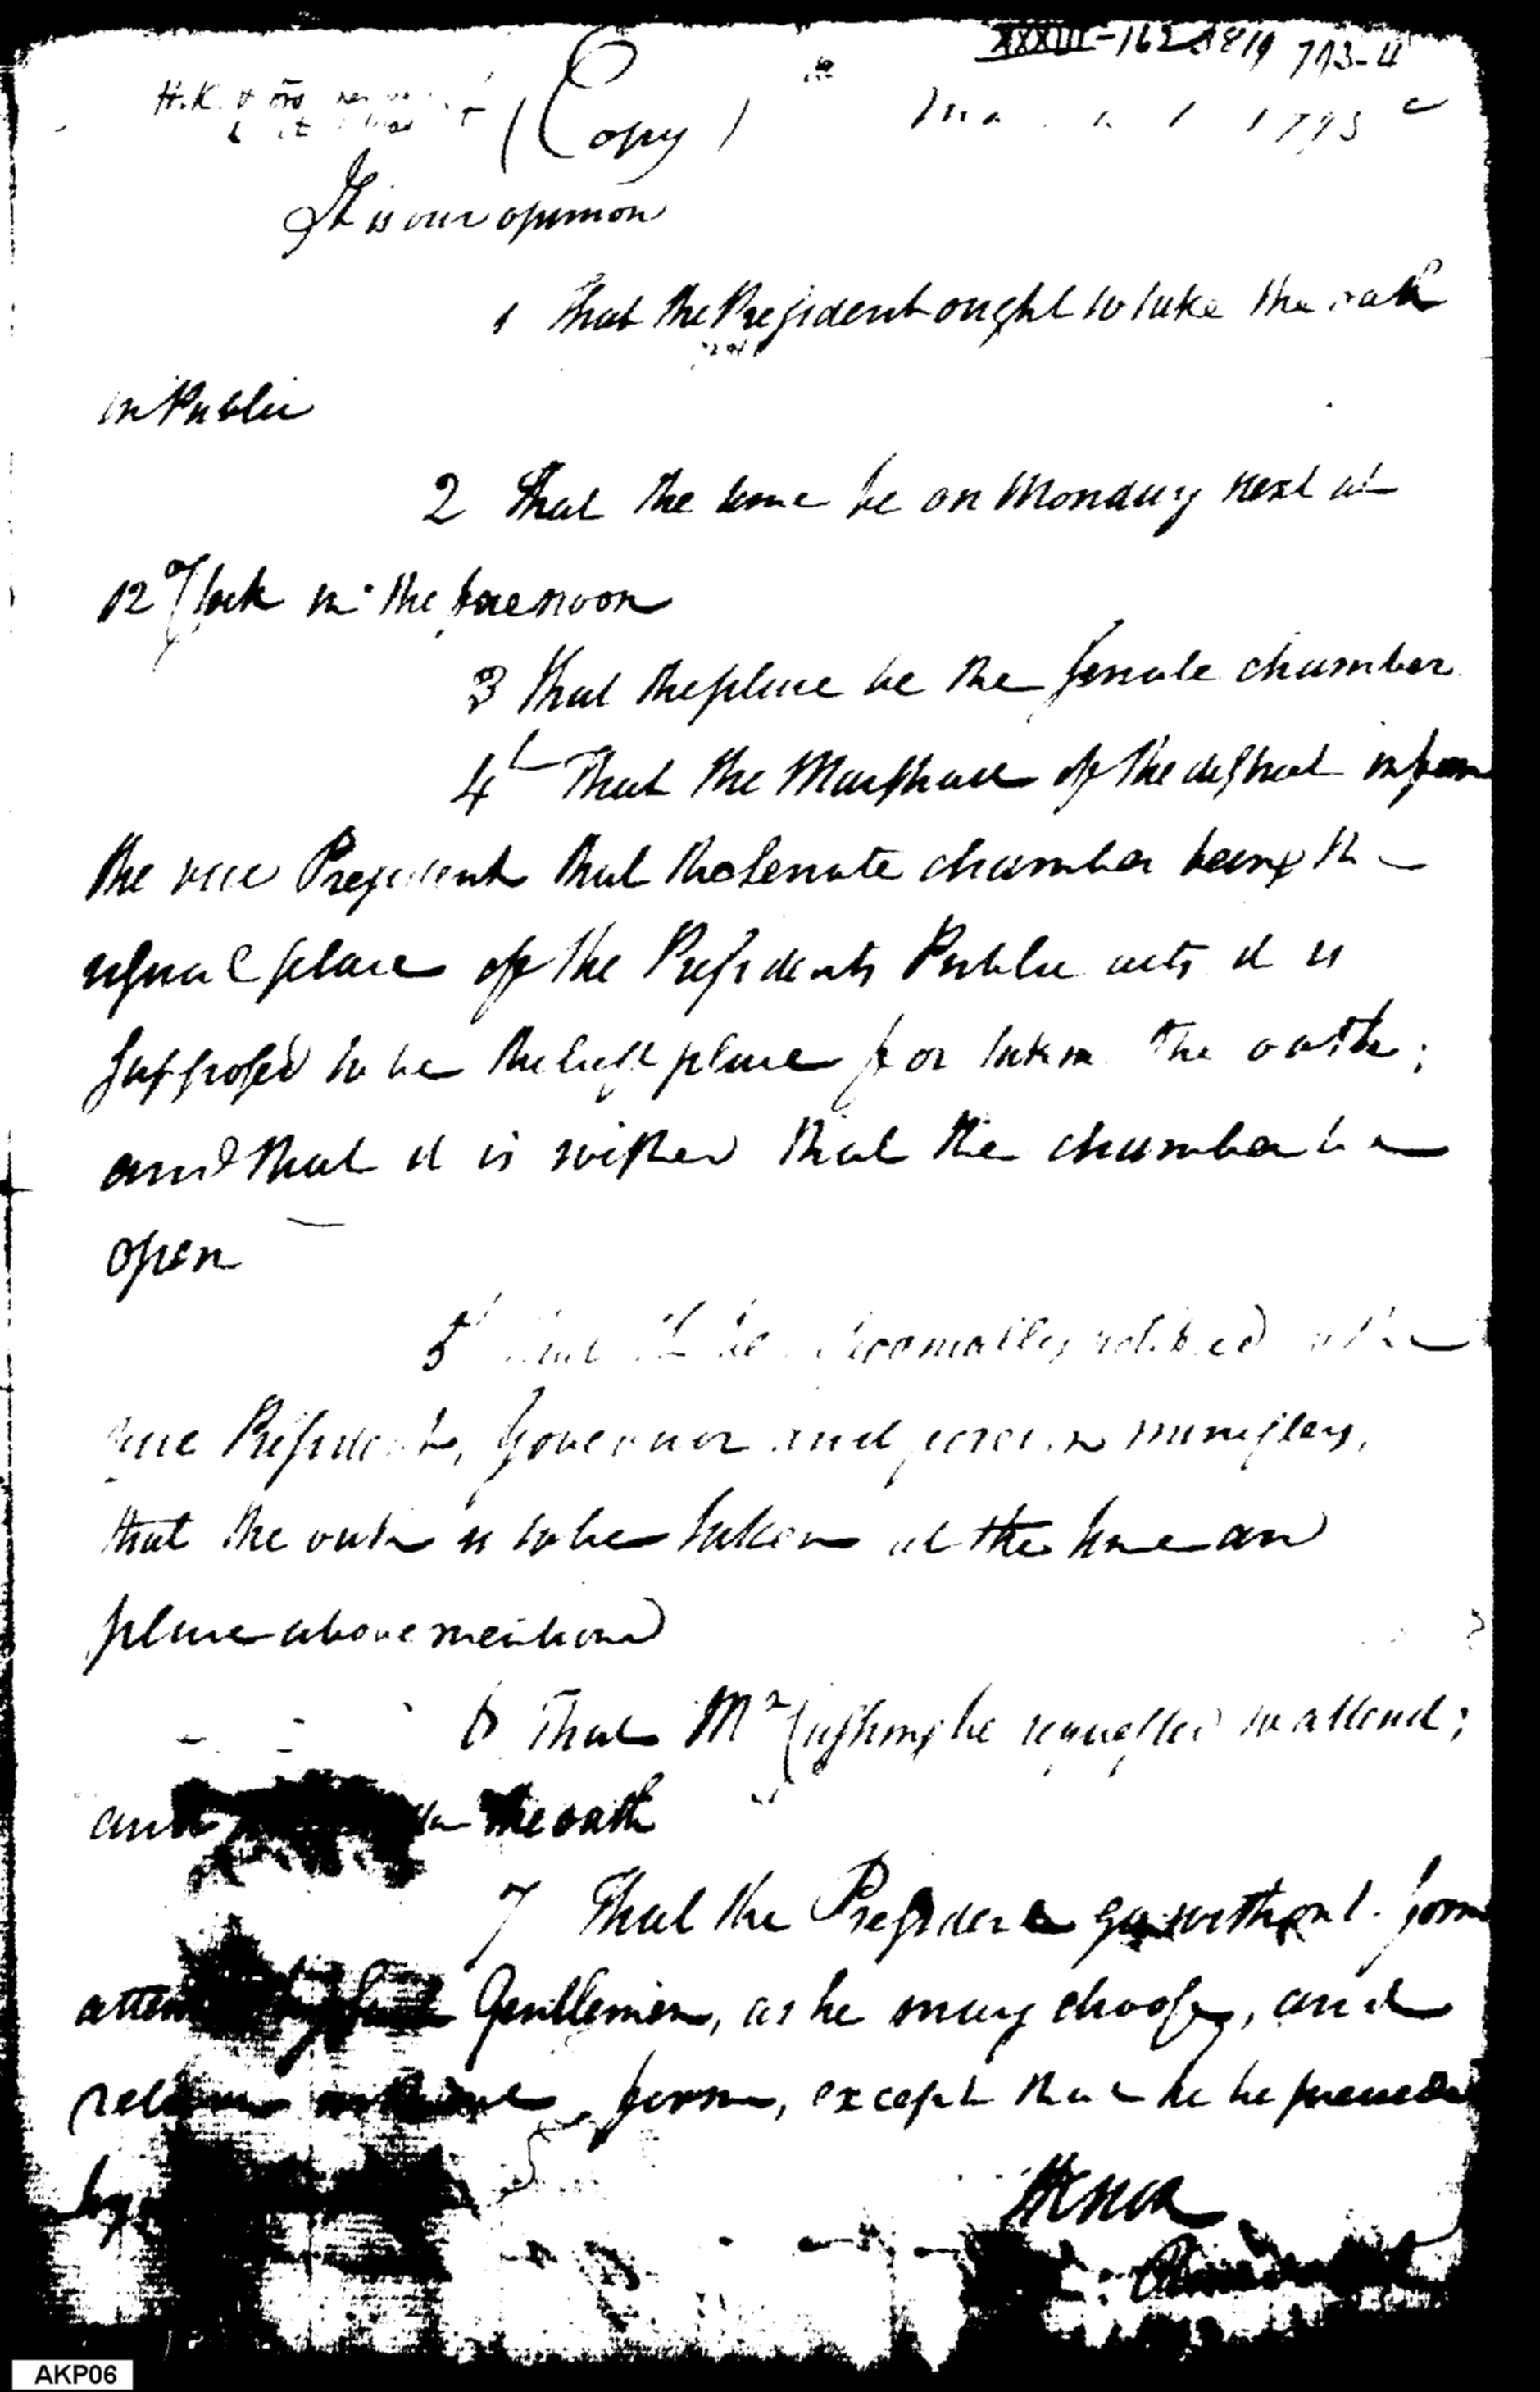 XXXIII-162 1819 793-4
H.K. &
(Copy) 1793
It is our opinion
1 that the President ought to take the oath
in Public
2 that the time be on Monday next at
12 oClock in the forenoon
3 that the place be the senate chamber
4 That the Marshall off the district inform
the vice President that the Senate chamber being the
usual place off the Presidents Public acts it is
supposed to be the best place for takin the oath;
and that it is wished that the chamber be
open
5 that it be formally notified to the
vice President, Governor and foreign ministers,
that the oath is to be taken at the time and
place above mentiond
6 That Mr Cushing be requested to attend;
and the oath
7 That the President go without form
attended by such Gentlemen, as he may choose, and
return without form, except that he be preceded
by
HKnox
AKP06